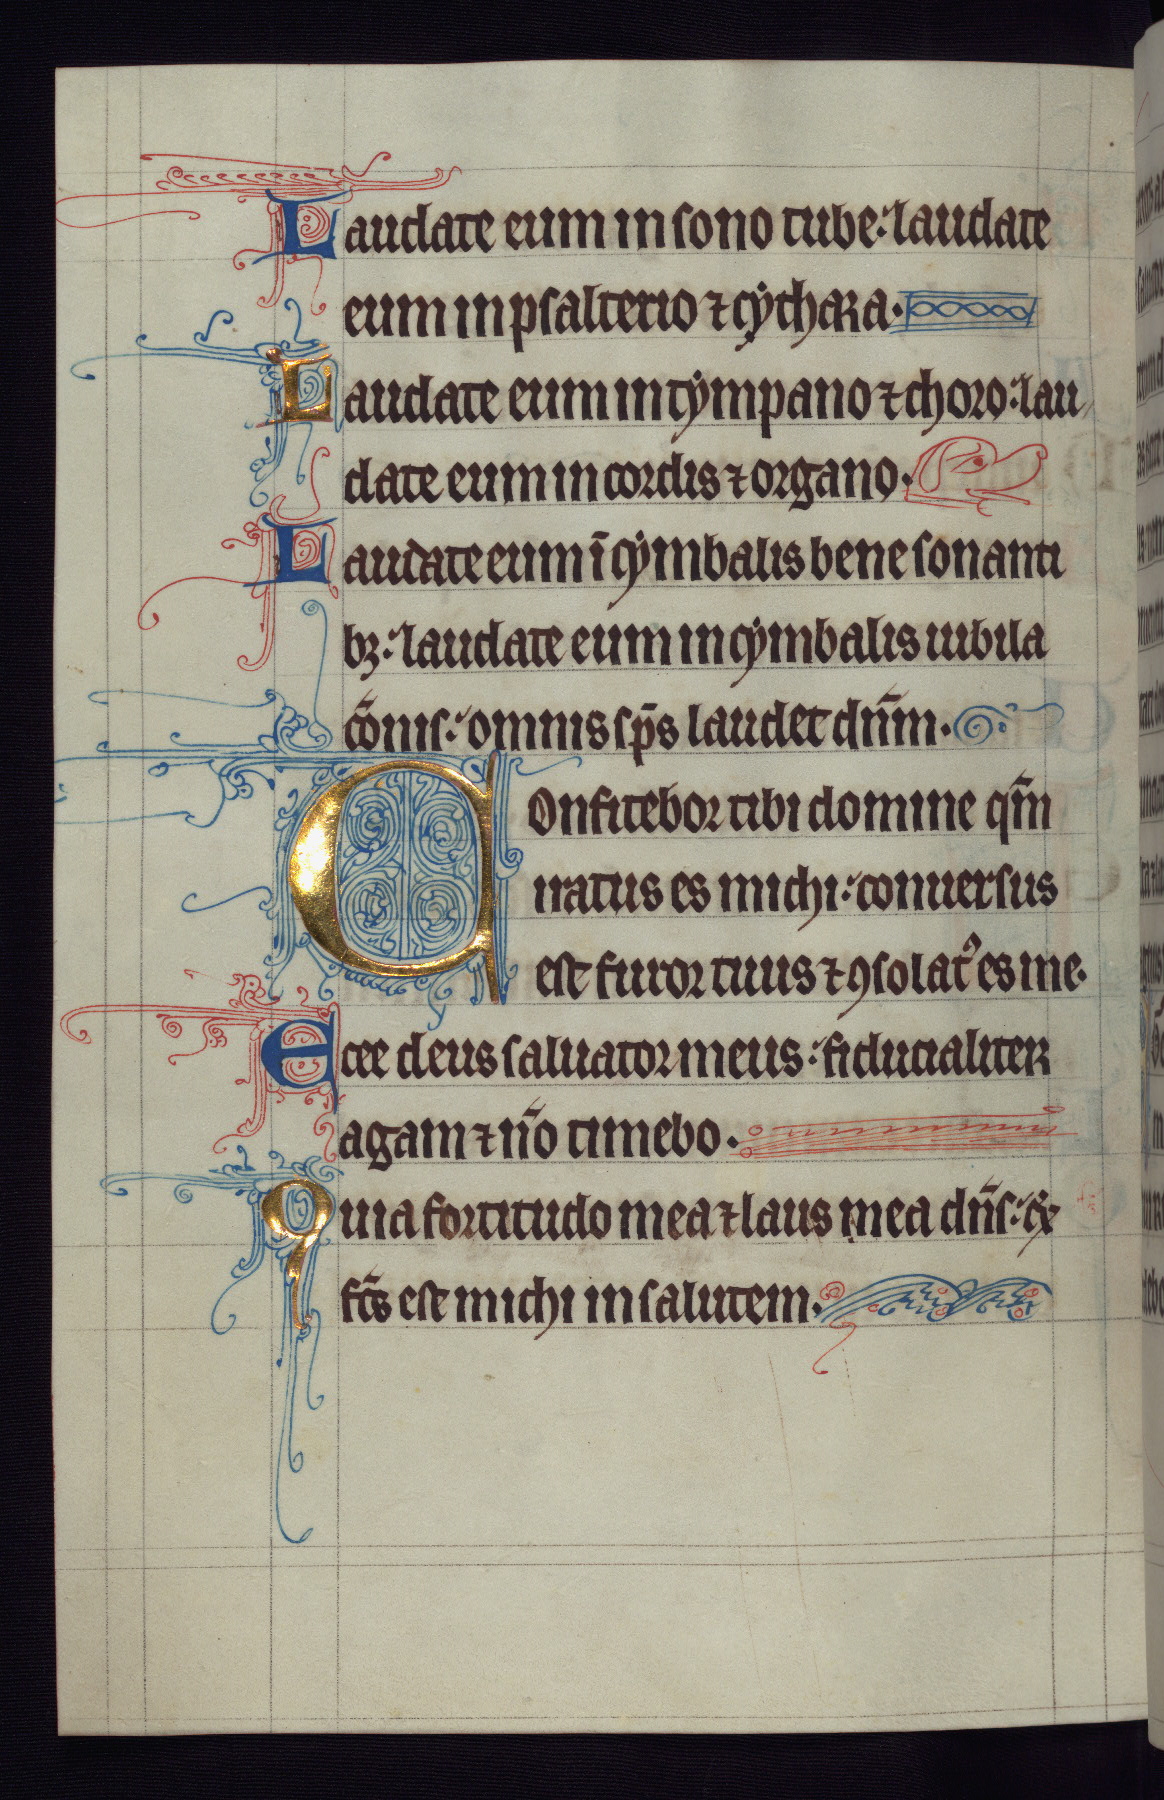 Laudate eum in sono tube: laudate
eum in psalterio ⁊ cythara.
Laudate eum in tympano ⁊ choro: lau
date eum in cordis ⁊ organo.
Laudate eum ī cymbalis bene sonanti
bꝫ: laudate eum in cymbalis iubila
cōnis: omnis sp̄s laudet dn̄m.
Confitebor tibi domine qm̄
iratus es michi: conuersus
est furor tuus ⁊ ꝯsolatꝰ es me.
Ecce deus saluator meus: fiducialiter
agam ⁊ nō timebo.
Quia fortitudo mea ⁊ laus mea dn̄s: ⁊
fc̄s est michi in salutem.